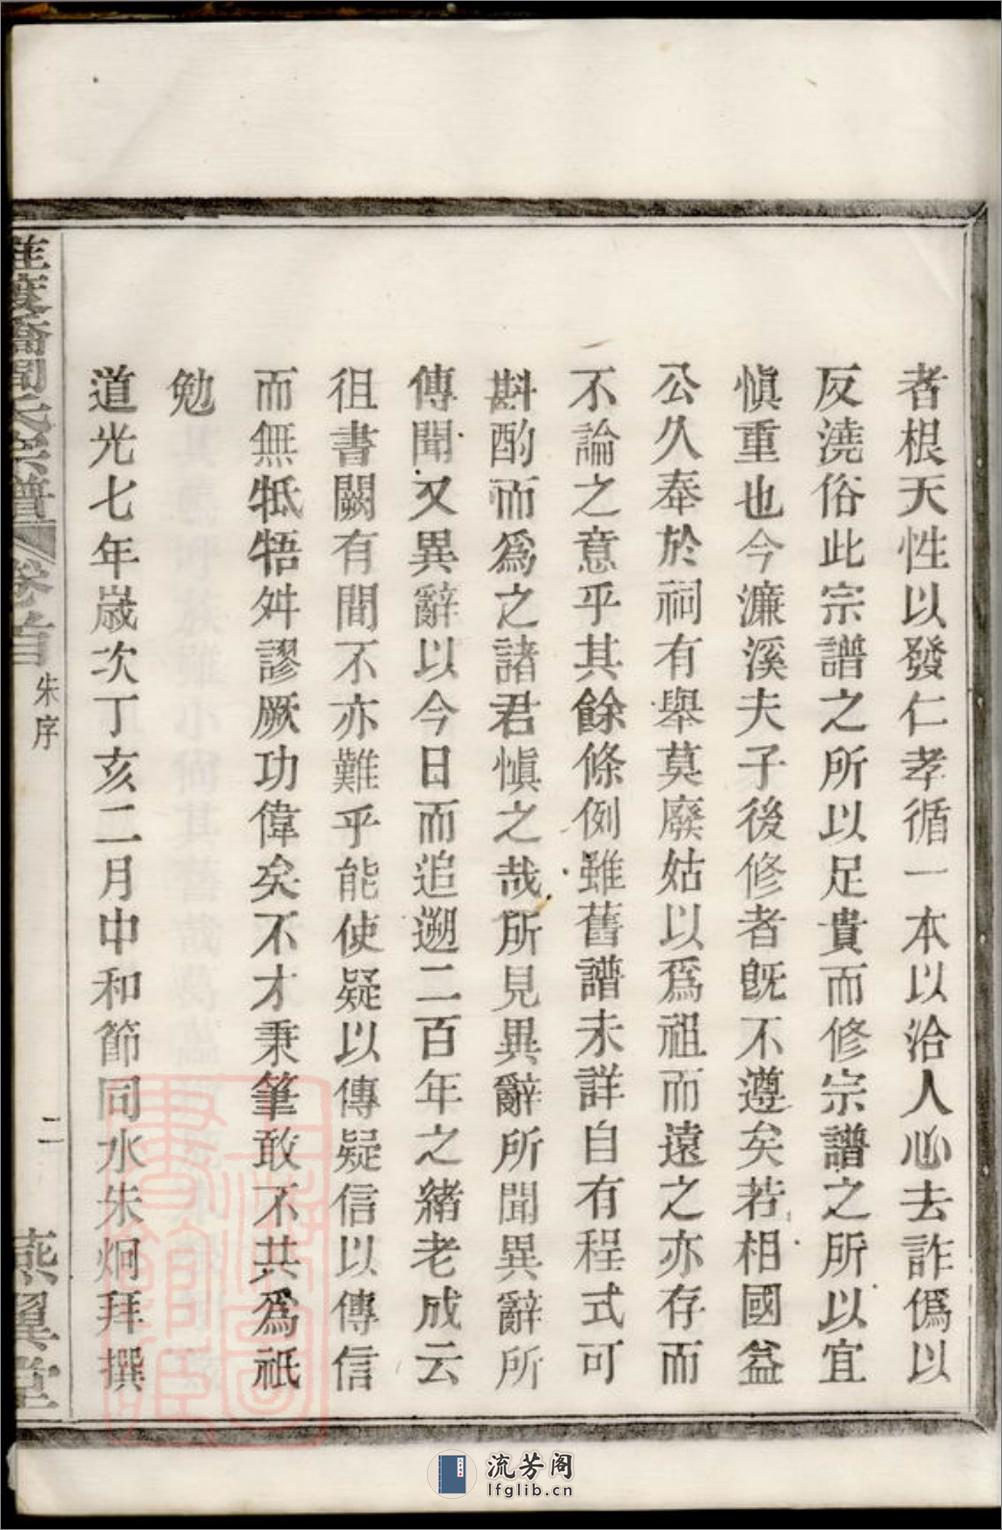 者根天性以發仁孝循一本以洽人心去詐僞以
反澆俗此宗譜之所以足貴而修宗譜之所以宜
愼重也今濂溪夫子後修者旣不遵矣若相國益
公久奉於祠有舉莫廢姑以爲祖而遠之亦存而
不論之意乎其餘條例雖舊譜未詳自有程式可
斟酌而爲之諸君愼之哉所見異辭所聞異辭所
傳聞又異辭以今日而追遡二百年之緖老成云
徂書闕有間不亦難乎能使疑以傳疑信以傳信
而無牴牾舛謬厥功偉矣不才秉筆敢不共爲祇
勉
道光七年歲次丁亥二月中和節同水朱炯拜撰
橋周氏宗譜 卷首 朱序 二 燕翼堂
流芳阁
lfglib.cn